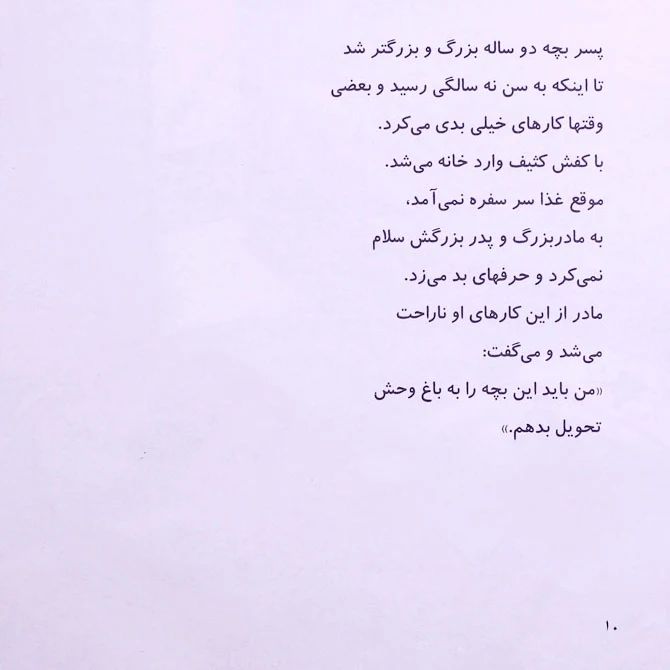 پسر بچه دو ساله بزرگ و بزرگتر شد
تا اینکه به سن نه سالگی رسید و بعضی
وقتها کارهای خیلی بدی می‌کرد.
با کفش کثیف وارد خانه می‌شد.
موقع غذا سر سفره نمی‌آمد،
به مادربزرگ و پدر بزرگش سلام
نمی‌کرد و حرفهای بد می‌زد.
مادر از این کارهای او ناراحت
می‌شد و می‌گفت:
«من باید این بچه را به باغ وحش
تحویل بدهم.»
۱۰